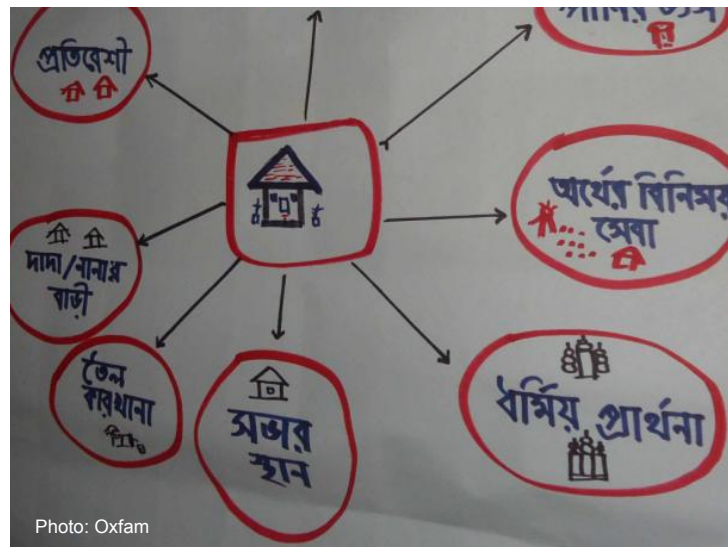 প্রতিবেশী
পানির উৎস
অর্থের বিনিময়
সেবা
দাদা/নানার
বাড়ী
তৈল
কারখানা
সভার
স্থান
ধর্মিয় প্রার্থনা
Photo: Oxfam